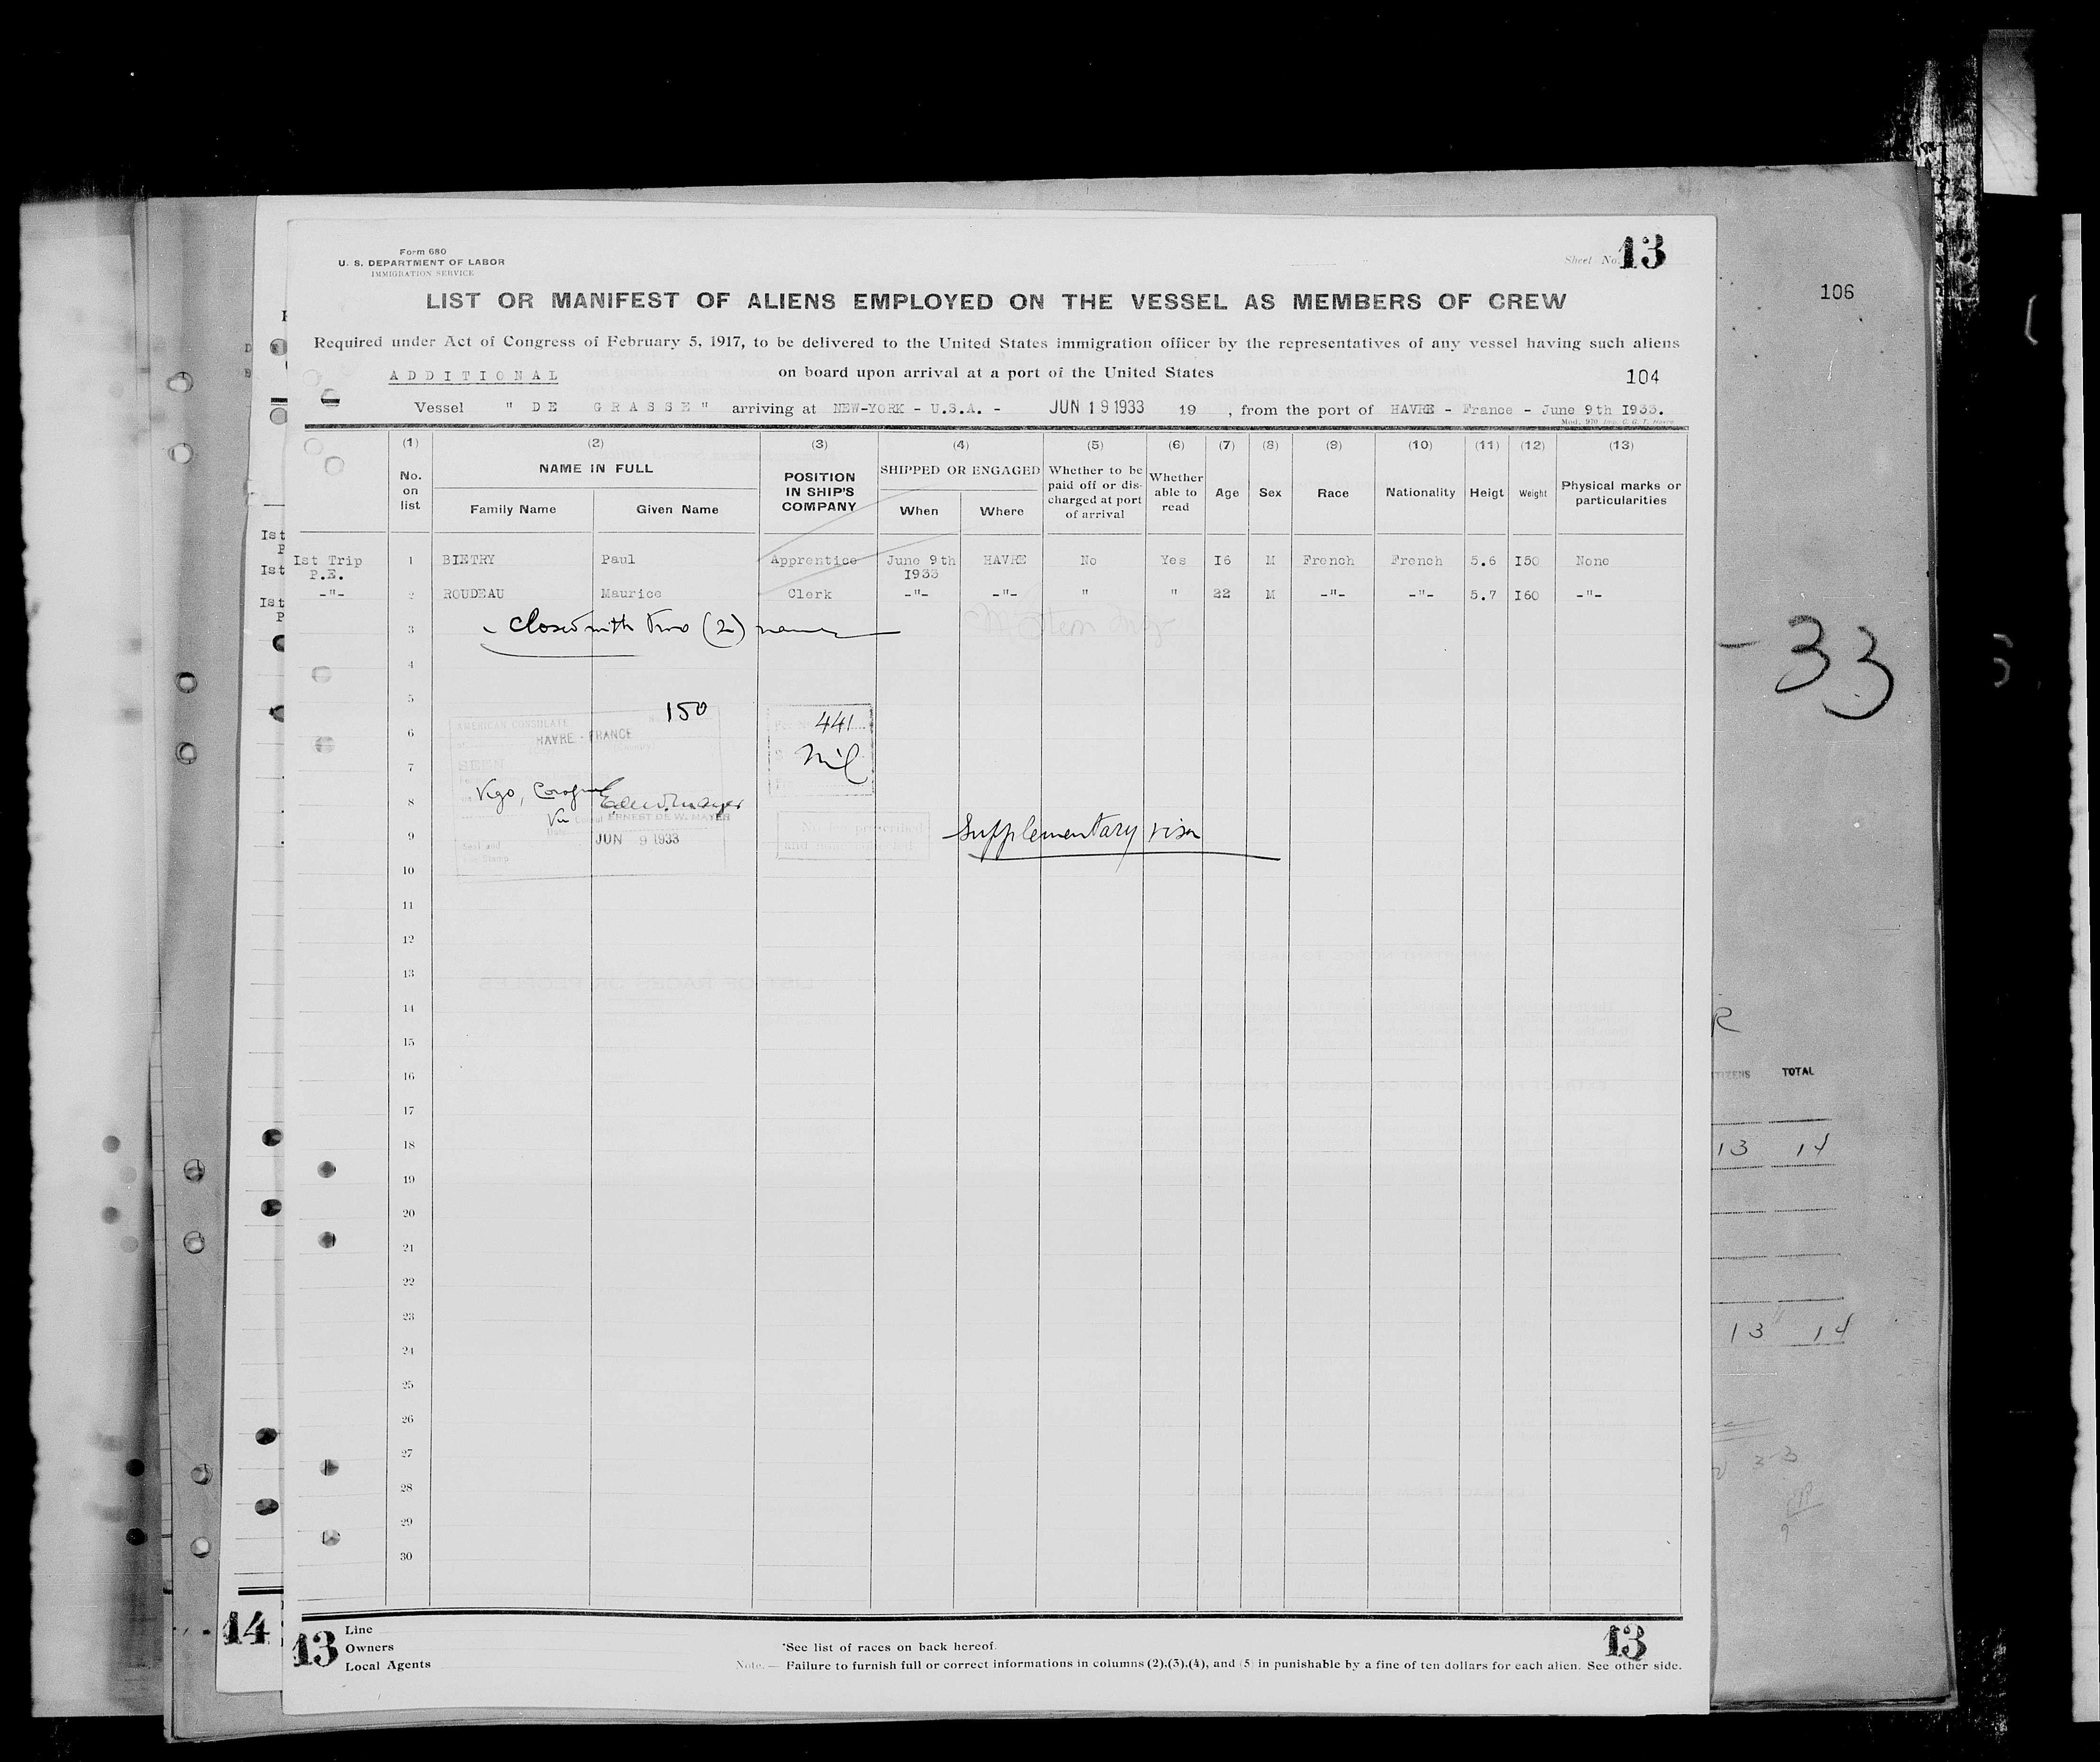 Form 680
U. S. DEPARTMENT OF LABOR
IMMIGRATION SERVICE
Sheet No. 13
LIST OR MANIFEST OF ALIENS EMPLOYED ON THE VESSEL AS MEMBERS OF CREW
106
Required under Act of Congress of February 5, 1917, to be delivered to the United States immigration officer by the representatives of any vessel having such aliens
ADDITIONAL on board upon arrival at a port of the United States 104
Vessel " DE GRASSE " arriving at NEW-YORK - U.S.A. - JUN 19 1933 19 , from the port of HAVRE - France - June 9th 1933.
Mod. 970 Imp. C. G. T. Havre
(1) (2) (3) (4) (5) (6) (7) (8) (9) (10) (11) (12) (13)
No. on list NAME IN FULL Family Name Given Name POSITION IN SHIP'S COMPANY SHIPPED OR ENGAGED When Where Whether to be paid off or discharged at port of arrival Whether able to read Age Sex Race Nationality Heigt Weight Physical marks or particularities
Ist Trip P.E. 1 BIETRY Paul Apprentice June 9th 1933 HAVRE No Yes I6 M French French 5.6 I50 None
-"- 2 ROUDEAU Maurice Clerk -"- -"- " " 22 M -"- -"- 5.7 I60 -"-
3 Closed with two (2) names
- 33
4
5
150
441
AMERICAN CONSULATE
6 HAVRE - FRANCE
Nil
7 SEEN
8 Vigo,
ERNEST DE W. MAYER
9 JUN 9 1933
No fee prescribed
and none collected
Supplementary visa
Seal and
Stamp
10
11
12
13
14
15
16
17
18
19
20
21
22
23
24
25
26
27
28
29
30
TOTAL
13 14
13 14
14
13
Line
Owners
Local Agents
*See list of races on back hereof.
13
Note. — Failure to furnish full or correct informations in columns (2),(3),(4), and (5) in punishable by a fine of ten dollars for each alien. See other side.